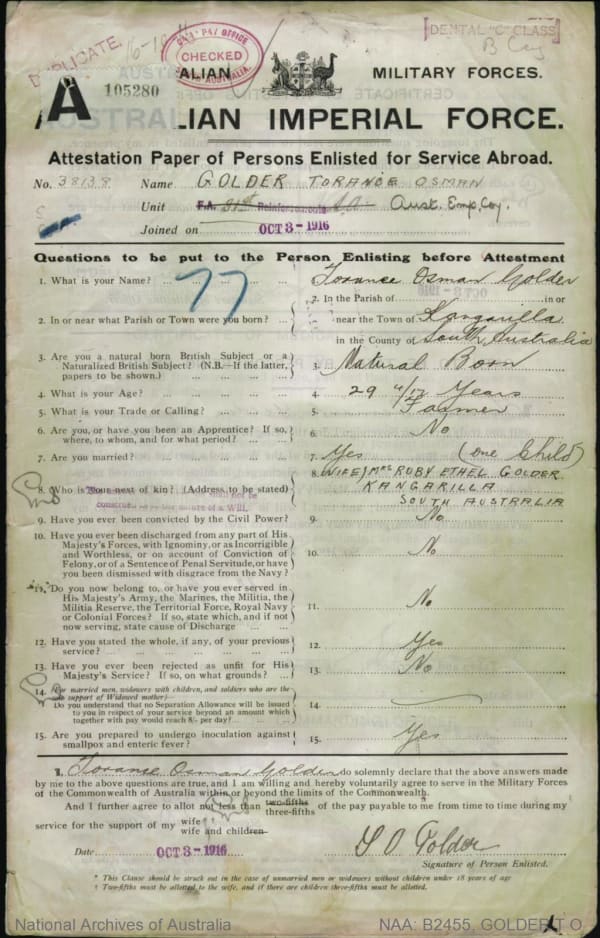 DUPLICATE. 16-18
PAY OFFICE
CHECKED
AUSTRALIA.
DENTAL "C" CLASS
B Coy
ALIAN MILITARY FORCES.
A 105280
AUSTRALIAN IMPERIAL FORCE.
Attestation Paper of Persons Enlisted for Service Abroad.
No. 38138 Name GOLDER TORANCE OSMAN
Unit F.A. 31st Reinforcements S.A. Aust. Emp. Coy.
Joined on OCT 3 - 1916
Questions to be put to the Person Enlisting before Attestation
77
1. What is your Name? ... 1. Torance Osman Golder
2. In the Parish of in or
2. In or near what Parish or Town were you born? ... near the Town of Kangarilla
in the County of South Australia
3. Are you a natural born British Subject or a
Naturalized British Subject? (N.B.—If the latter,
papers to be shown.) ... 3. Natural Born
4. What is your Age? ... 4. 29 4/12 Years
5. What is your Trade or Calling? ... 5. Farmer
6. Are you, or have you been an Apprentice? If so,
where, to whom, and for what period? ... 6. No
7. Are you married? ... 7. Yes (one Child)
8. Who is your next of kin? (Address to be stated) 8. (WIFE) MRS RUBY ETHEL GOLDER
KANGARILLA
SOUTH AUSTRALIA
9. Have you ever been convicted by the Civil Power? 9. No
10. Have you ever been discharged from any part of His
Majesty's Forces, with Ignominy, or as Incorrigible
and Worthless, or on account of Conviction of
Felony, or of a Sentence of Penal Servitude, or have
you been dismissed with disgrace from the Navy? 10. No
11. Do you now belong to, or have you ever served in
His Majesty's Army, the Marines, the Militia, the
Militia Reserve, the Territorial Force, Royal Navy
or Colonial Forces? If so, state which, and if not
now serving, state cause of Discharge ... 11. No
12. Have you stated the whole, if any, of your previous
service? ... 12. Yes
13. Have you ever been rejected as unfit for His
Majesty's Service? If so, on what grounds? ... 13. No
14. (For married men, widowers with children, and soldiers who are the
sole support of Widowed mother)—
Do you understand that no Separation Allowance will be issued
to you in respect of your service beyond an amount which
together with pay would reach 8/- per day? ... 14.
15. Are you prepared to undergo inoculation against
smallpox and enteric fever? 15. Yes
I, Torance Osman Golder do solemnly declare that the above answers made
by me to the above questions are true, and I am willing and hereby voluntarily agree to serve in the Military Forces
of the Commonwealth of Australia within or beyond the limits of the Commonwealth.
And I further agree to allot not less than two-fifths three-fifths of the pay payable to me from time to time during my
service for the support of my wife
wife and children
Date OCT 3 - 1916 T O Golder
Signature of Person Enlisted.
* This Clause should be struck out in the case of unmarried men or widowers without children under 18 years of age
† Two-fifths must be allotted to the wife, and if there are children three-fifths must be allotted.
National Archives of Australia NAA: B2455, GOLDER T O